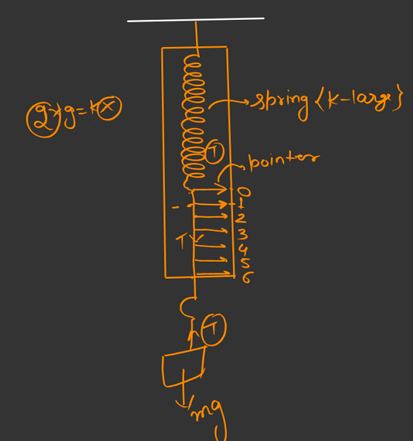 2g = kx
spring {k-large}
T
pointer
0
1
2
3
T
4
5
6
T
mg